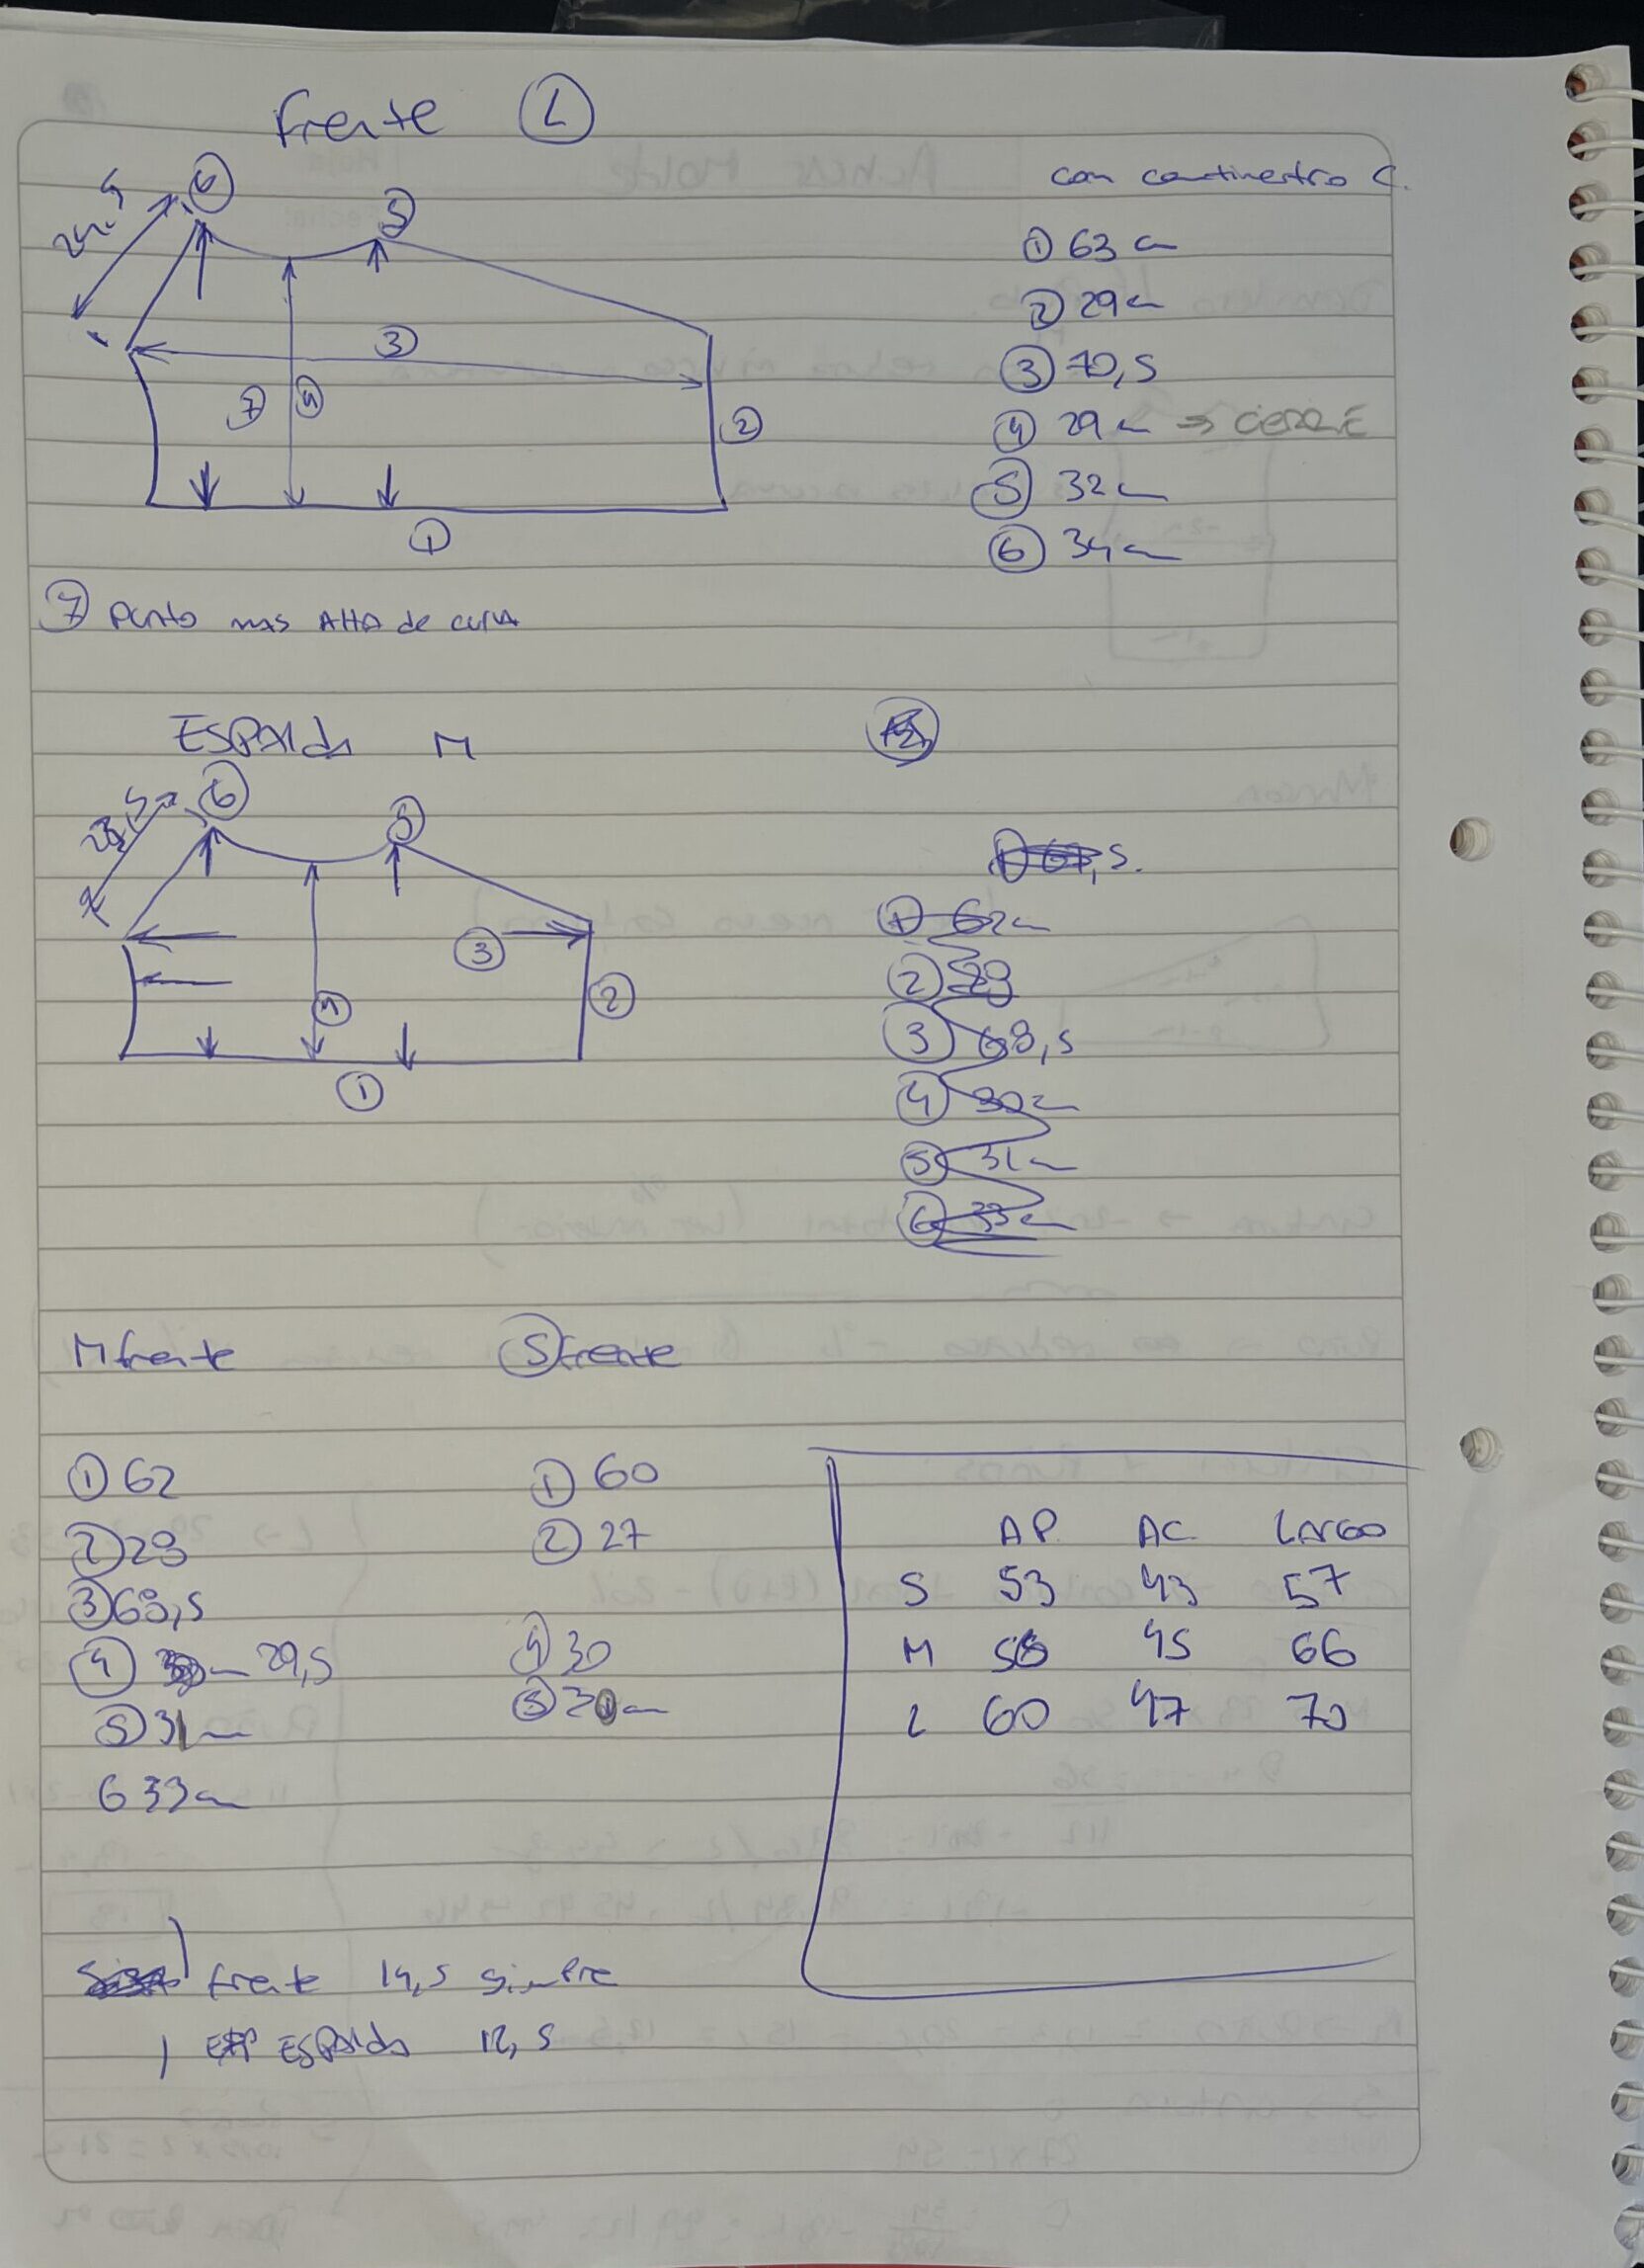 frente (L)
con centimetro C.
24,5
6
5
3
7
4
2
1
① 63 cm
② 29 cm
③ 70,5
④ 29 cm ⇒ CIERRE
⑤ 32 cm
⑥ 34 cm
⑦ Punto mas Alto de curva
ESPALda M
23,5
6
5
3
4
2
1
① 62 cm
③ 68,5
④ 30 cm
⑤ 31 cm
⑥ 33 cm
M frente
① 62
② 28
③ 68,5
④ 29,5
⑤ 31 cm
6 33 cm
Ⓢ frente
① 60
② 27
④ 30
⑤ 30 cm
AP. AC LARGO
S 53 43 57
M 56 45 66
L 60 47 70
frente 14,5 siempre
ESPALda 12,5